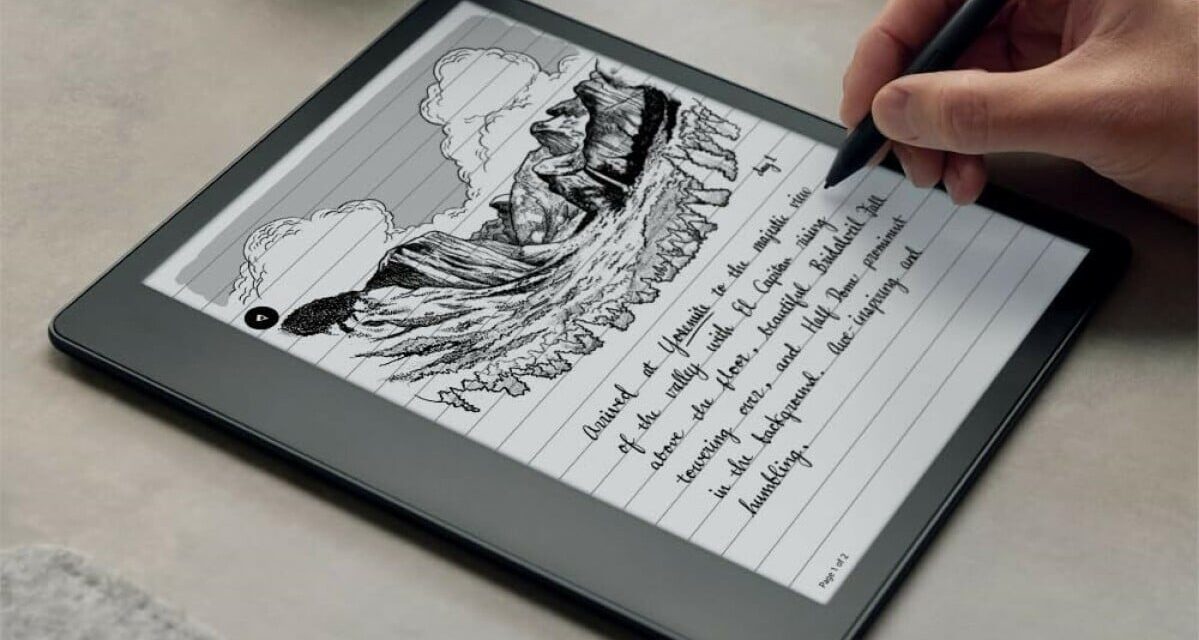 Day 1
Arrived at Yosemite to the majestic view
of the valley with El Capitan rising
above the floor, beautiful Bridalveil Fall
towering over, and Half Dome prominent
in the background. Awe-inspiring and
humbling.
Page 1 of 2